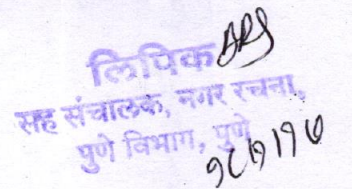 लिपिक
सह संचालक, नगर रचना,
पुणे विभाग, पुणे